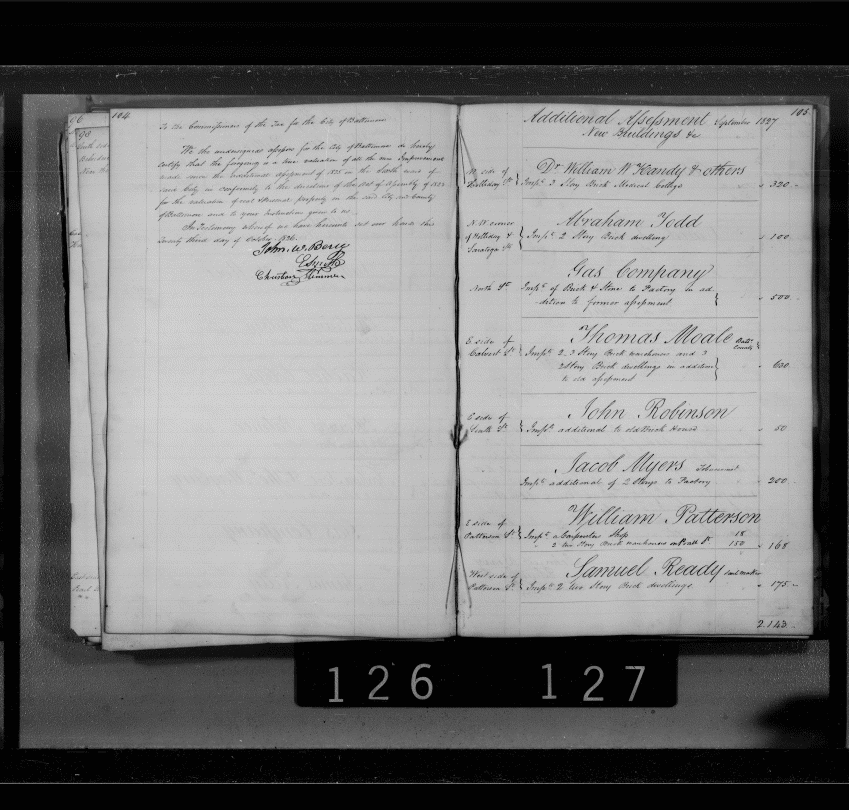 96
98
104
To the Commissioners of the Tax for the City of Baltimore
We the undersigned assessors for the City of Baltimore do hereby
certify that the foregoing is a true valuation of all the new Improvements
made since the additional assessment of 1825 in the
said City in conformity to the directions of the Act of Assembly of
for the valuation of real & personal property in the said City and County
of Baltimore and to your Instruction given to us.
In Testimony whereof we have hereunto set our hands this
twenty third day of October 1826.
John. W. Berry
Christian
105
Additional Assessment September 1827
New Buildings &c
W side of Holliday St } Imp.ts 3 Story Brick Medical College
Dr William W Handy & others
" 320
N. W corner of Holliday & Saratoga Sts } Imp.ts 2 Story Brick dwelling
Abraham Todd
" 100
Gas Company
North St Imp.ts of Brick & Stone to Factory in ad
-dition to former assessment }
" 500
Thomas Moale Balto County
E side of Calvert St } Imp.ts 2. 3 Story Brick warehouses and 3
2 Story Brick dwellings in addition
to old assessment }
" 630
John Robinson
E side of South St } Imp.ts additional to old Brick House
" 50
Jacob Myers
Imp.ts additional of 2 Storys to Factory
" 200
William Patterson
E side of Patterson St } Imp.ts a Carpenters Shop 18
" 2 two Story Brick warehouses on Pratt St 150
" 168
Samuel Ready sail maker
West side of Patterson St } Imp.ts 2 two Story Brick dwellings
" 175
2.143
126 127